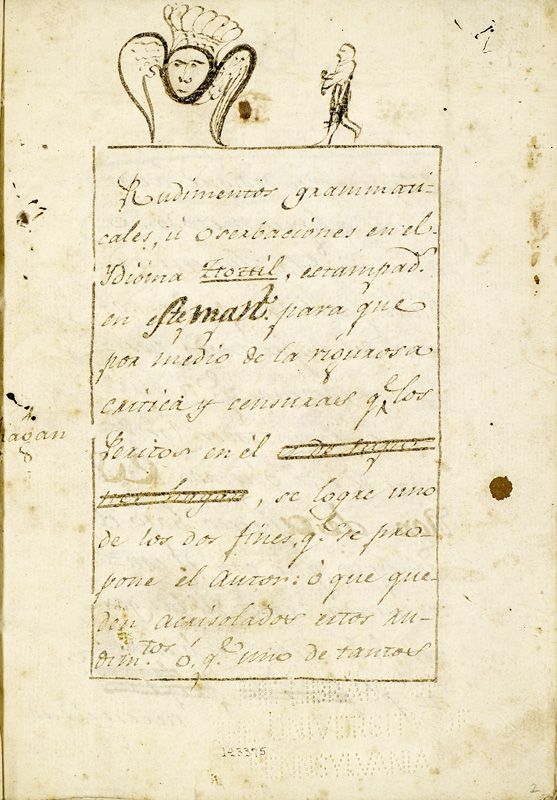 Rudimentos grammati-
cales, ú oserbaciones en el
Ydióma Tzotzil, estampad.
en este man.t para que
por medio de la rigurosa
critica y censuraes q.e los
hagan
Peritos en él
hagan, se logre uno
de los dos fines, q.e se pro-
pone el Autor: ó que que-
den acrisolados estos ru-
dim.tos ó, q.e uno de tantos
143375
2